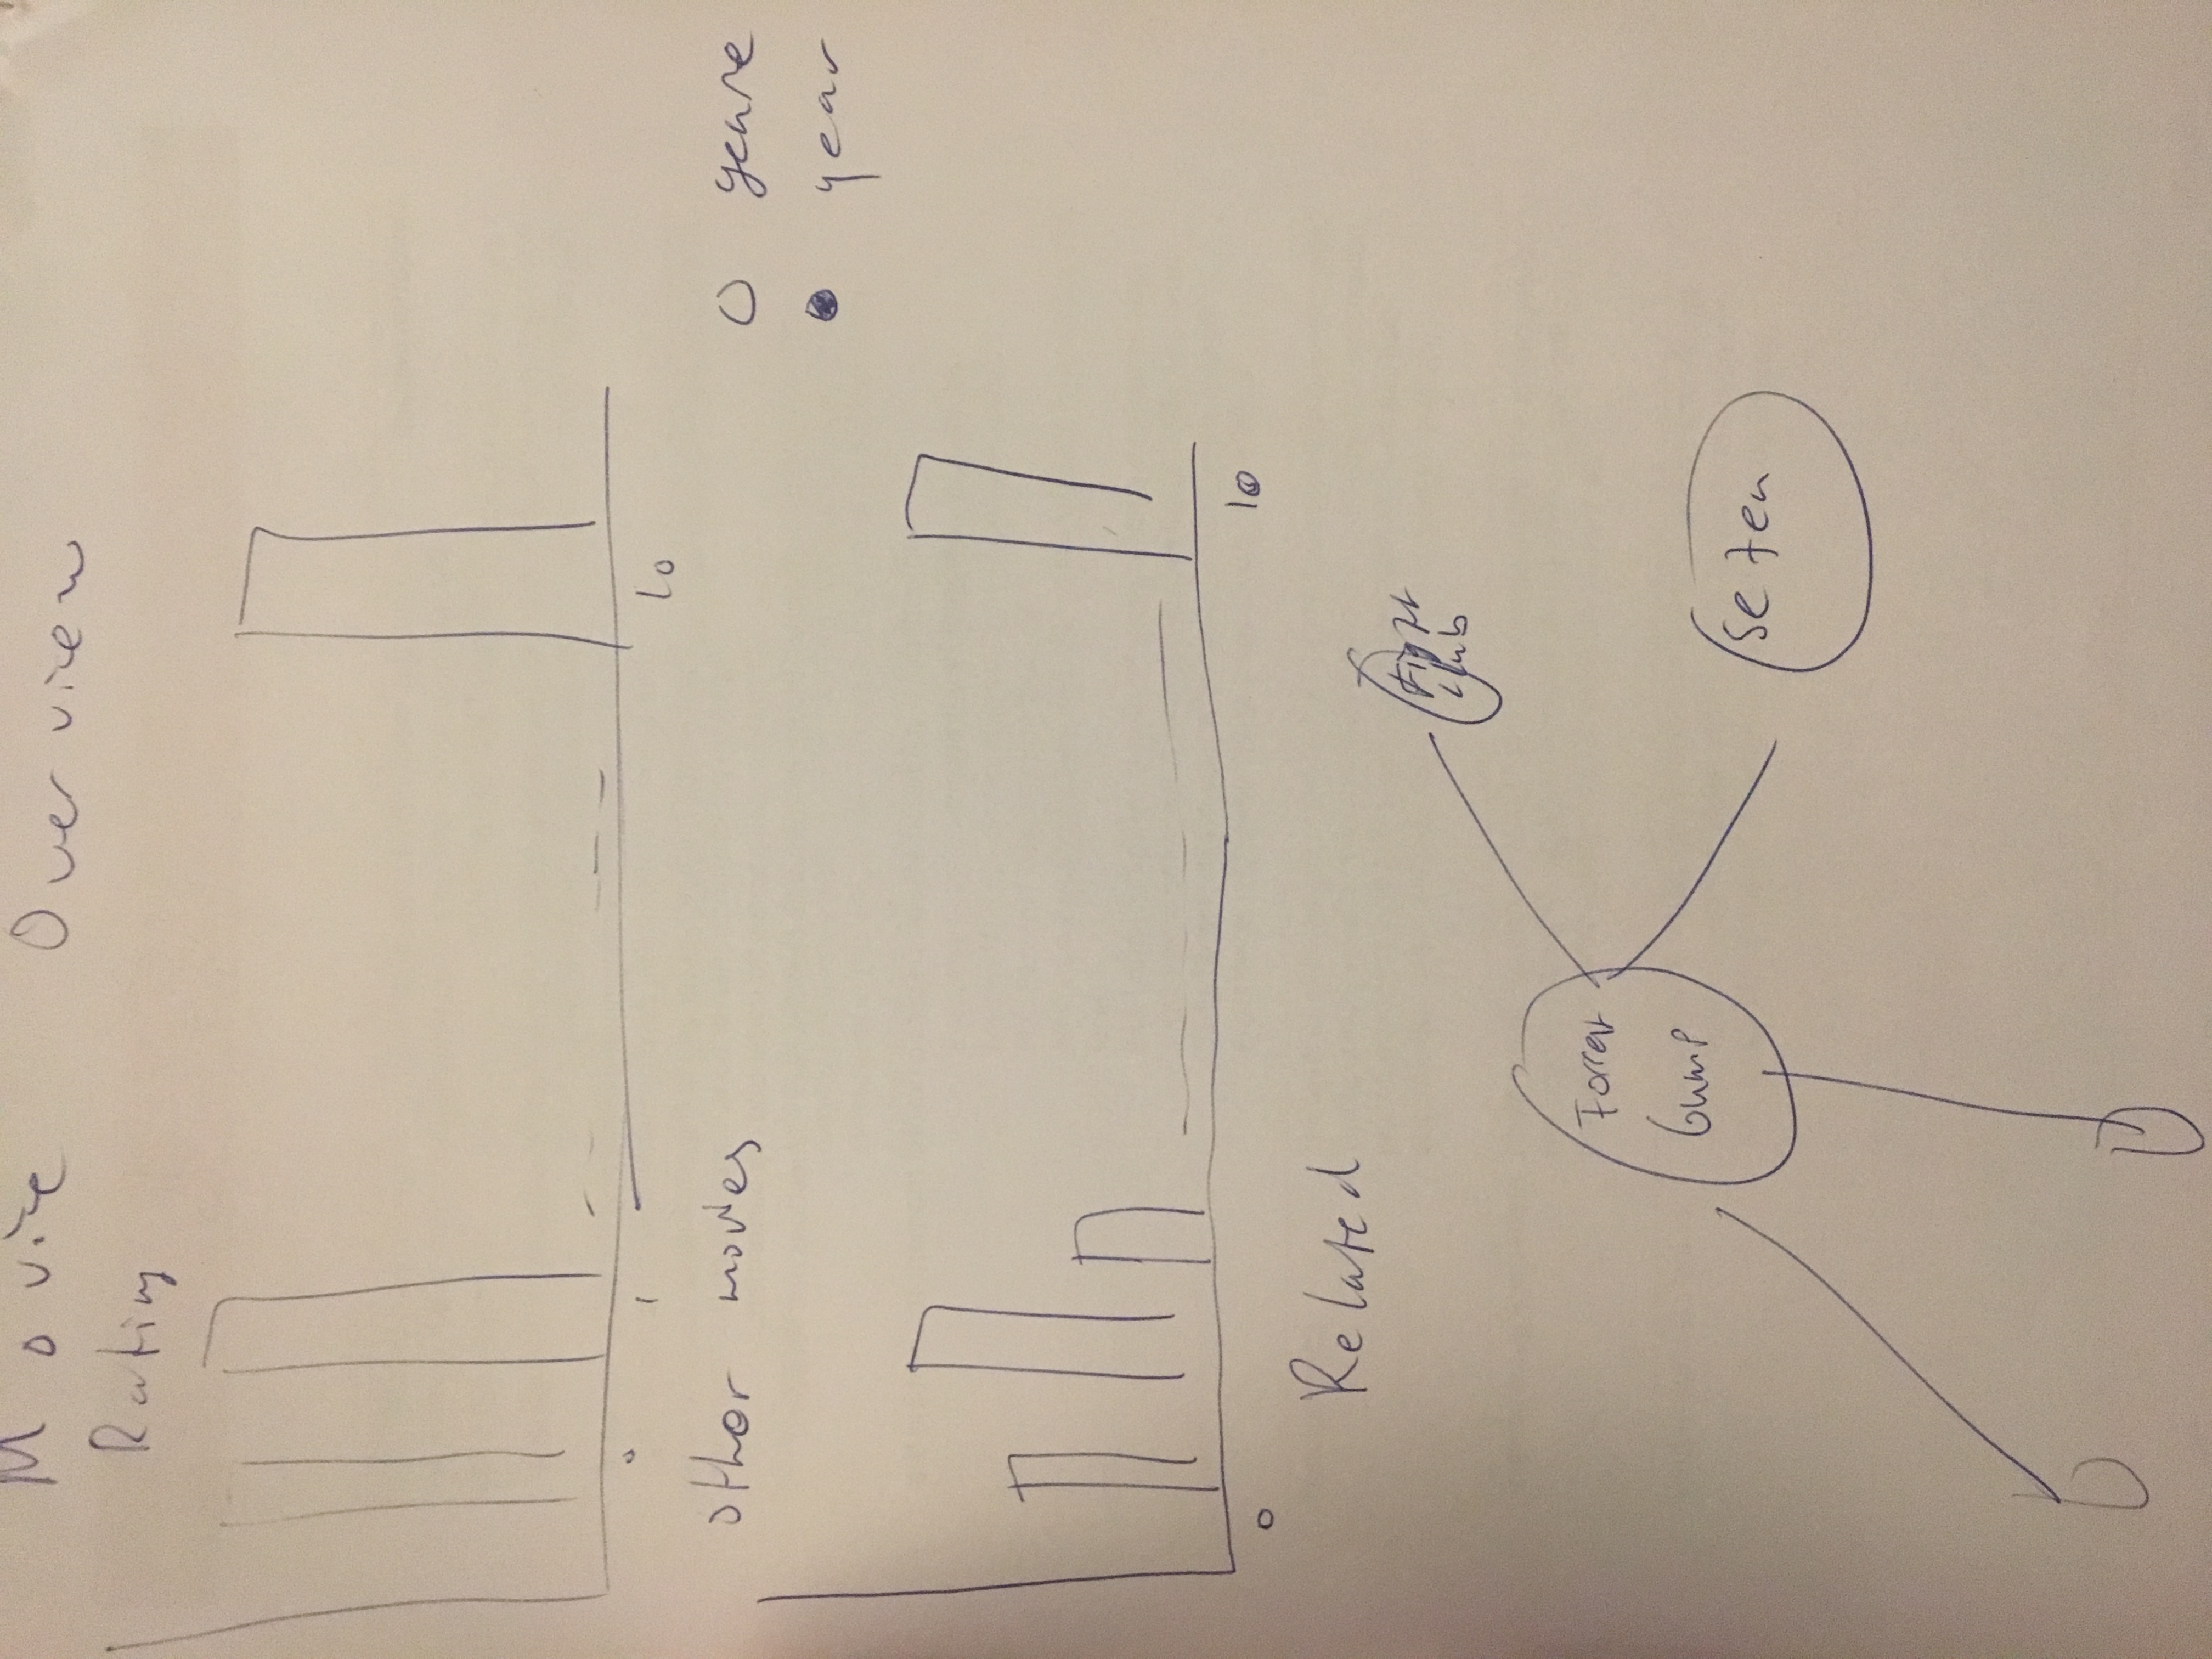 Movie Overview
Rating
0 1 10
other movies
genre
year
0 10
Related
Fight
Club
Forrest
Gump
Se7en